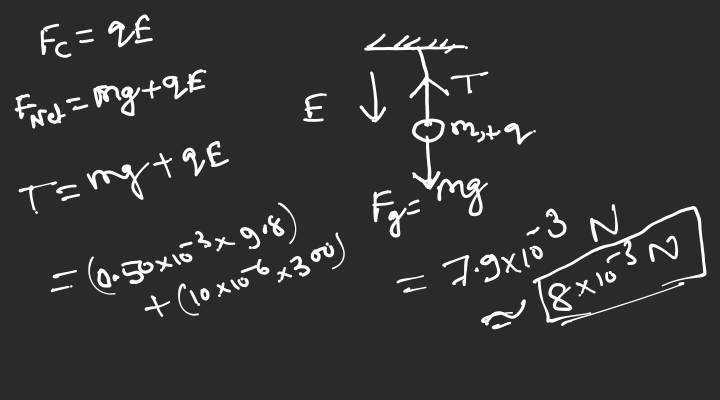 F_C = qE
F_Net = mg + qE
T = mg + qE
= (0.50 × 10⁻³ × 9.8)
+ (10 × 10⁻⁶ × 300)
E
T
m, + q
F_g = mg
= 7.9 × 10⁻³ N
≈ 8 × 10⁻³ N